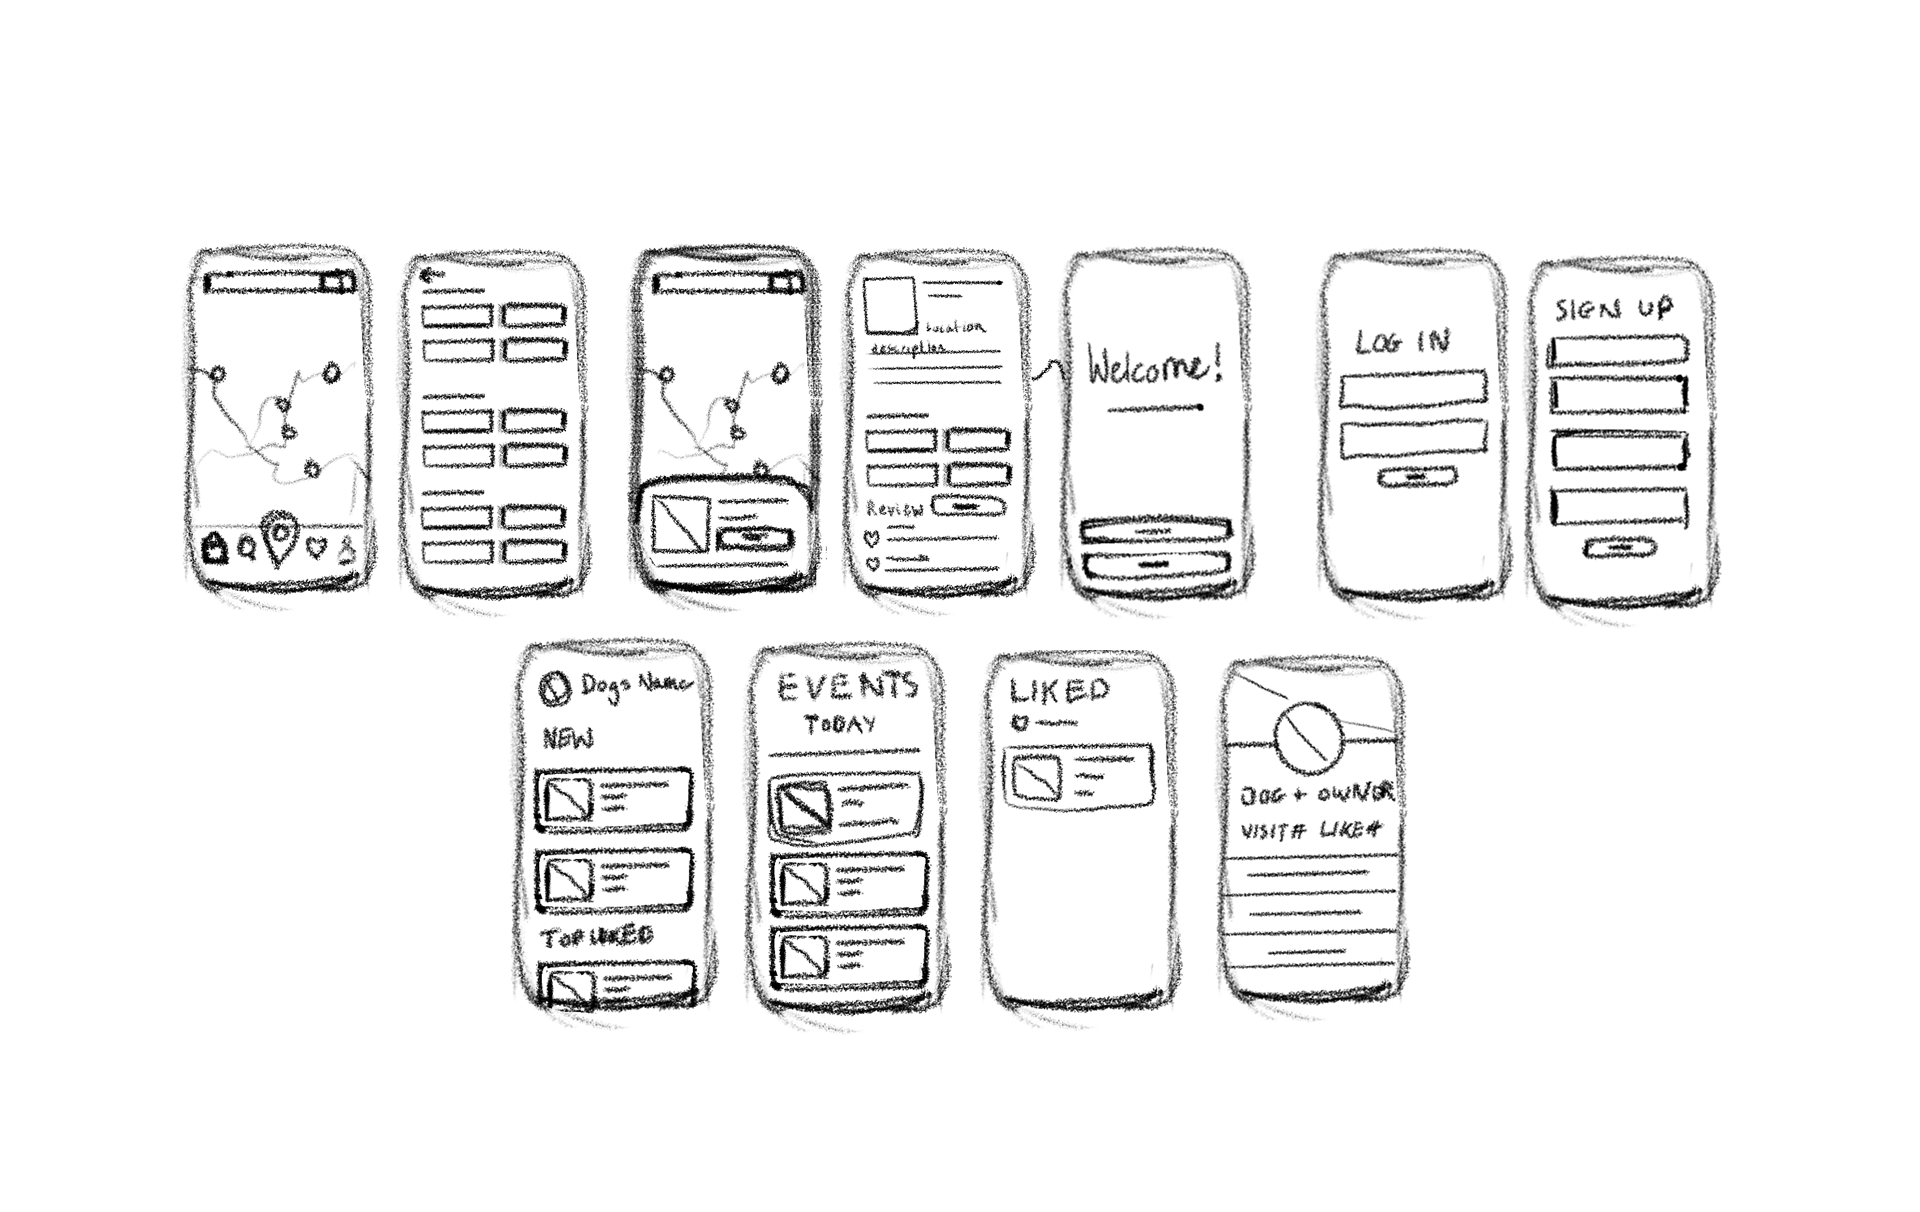 Location
description
Review
Welcome!
LOG IN
SIGN UP
Dogs Name
NEW
TOP LIKED
EVENTS
TODAY
LIKED
DOG + OWNER
VISIT# LIKE#